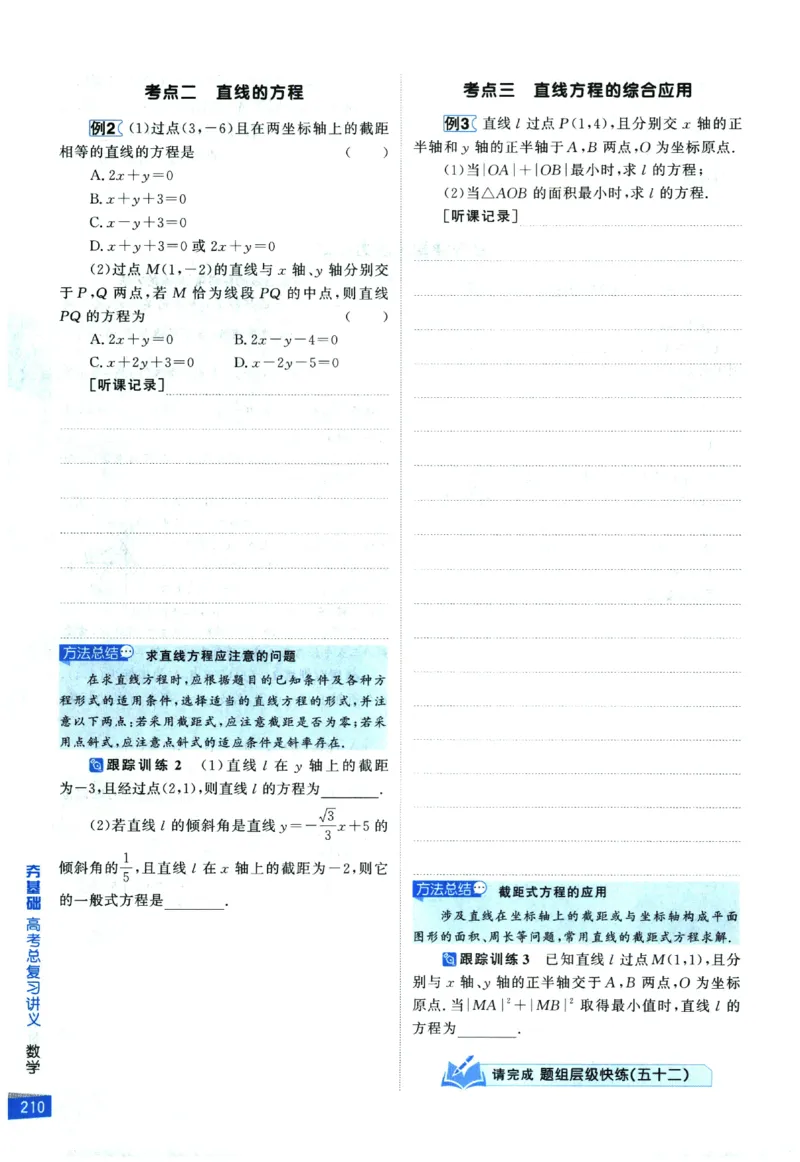 考点二 直线的方程
例2 (1)过点(3,-6)且在两坐标轴上的截距
相等的直线的方程是 ( )
A.2x+y=0
B.x+y+3=0
C.x-y+3=0
D.x+y+3=0或2x+y=0
(2)过点M(1,-2)的直线与x轴、y轴分别交
于P,Q两点,若M恰为线段PQ的中点,则直线
PQ的方程为 ( )
A.2x+y=0 B.2x-y-4=0
C.x+2y+3=0 D.x-2y-5=0
[听课记录]
方法总结 求直线方程应注意的问题
在求直线方程时,应根据题目的已知条件及各种方
程形式的适用条件,选择适当的直线方程的形式,并注
意以下两点:若采用截距式,应注意截距是否为零;若采
用点斜式,应注意点斜式的适应条件是斜率存在.
跟踪训练2 (1)直线l在y轴上的截距
为-3,且经过点(2,1),则直线l的方程为________.
(2)若直线l的倾斜角是直线y=-√3/3x+5的
倾斜角的1/5,且直线l在x轴上的截距为-2,则它
的一般式方程是________.
考点三 直线方程的综合应用
例3 直线l过点P(1,4),且分别交x轴的正
半轴和y轴的正半轴于A,B两点,O为坐标原点.
(1)当|OA|+|OB|最小时,求l的方程;
(2)当△AOB的面积最小时,求l的方程.
[听课记录]
方法总结 截距式方程的应用
涉及直线在坐标轴上的截距或与坐标轴构成平面
图形的面积、周长等问题,常用直线的截距式方程求解.
跟踪训练3 已知直线l过点M(1,1),且分
别与x轴、y轴的正半轴交于A,B两点,O为坐标
原点.当|MA|²+|MB|²取得最小值时,直线l的
方程为________.
请完成 题组层级快练(五十二)
夯基础 高考总复习讲义 数学
210